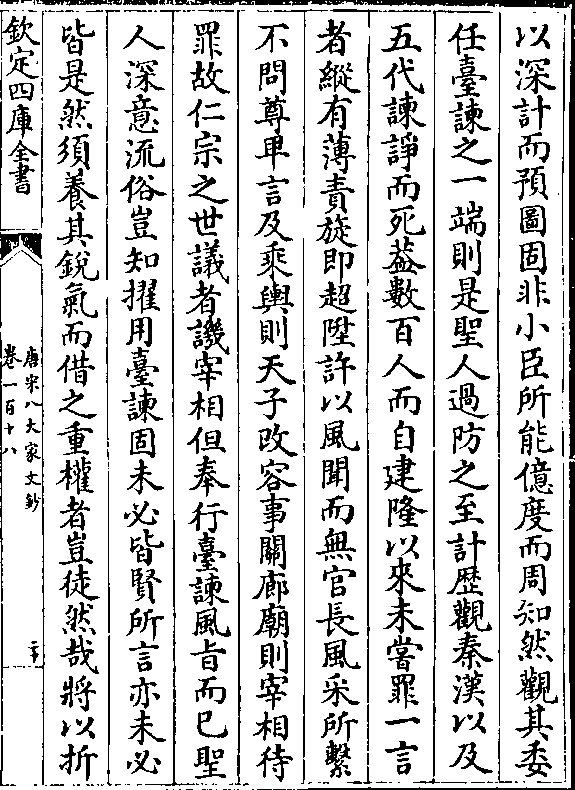 以深計而預圖固非小臣所能億度而周知然觀其委
任臺諫之一端則是聖人過防之至計歴觀秦漢以及
五代諫諍而死葢數百人而自建隆以來未嘗罪一言
者縱有薄責旋即超陞許以風聞而無官長風采所繫
不問尊卑言及乘輿則天子改容事關廊廟則宰相待
罪故仁宗之世議者譏宰相但奉行臺諫風㫖而已聖
人深意流俗豈知擢用臺諫固未必皆賢所言亦未必
皆是然須養其銳氣而借之重權者豈徒然哉將以折
欽定四庫全書
唐宋八大家文鈔
卷一百十八
二十